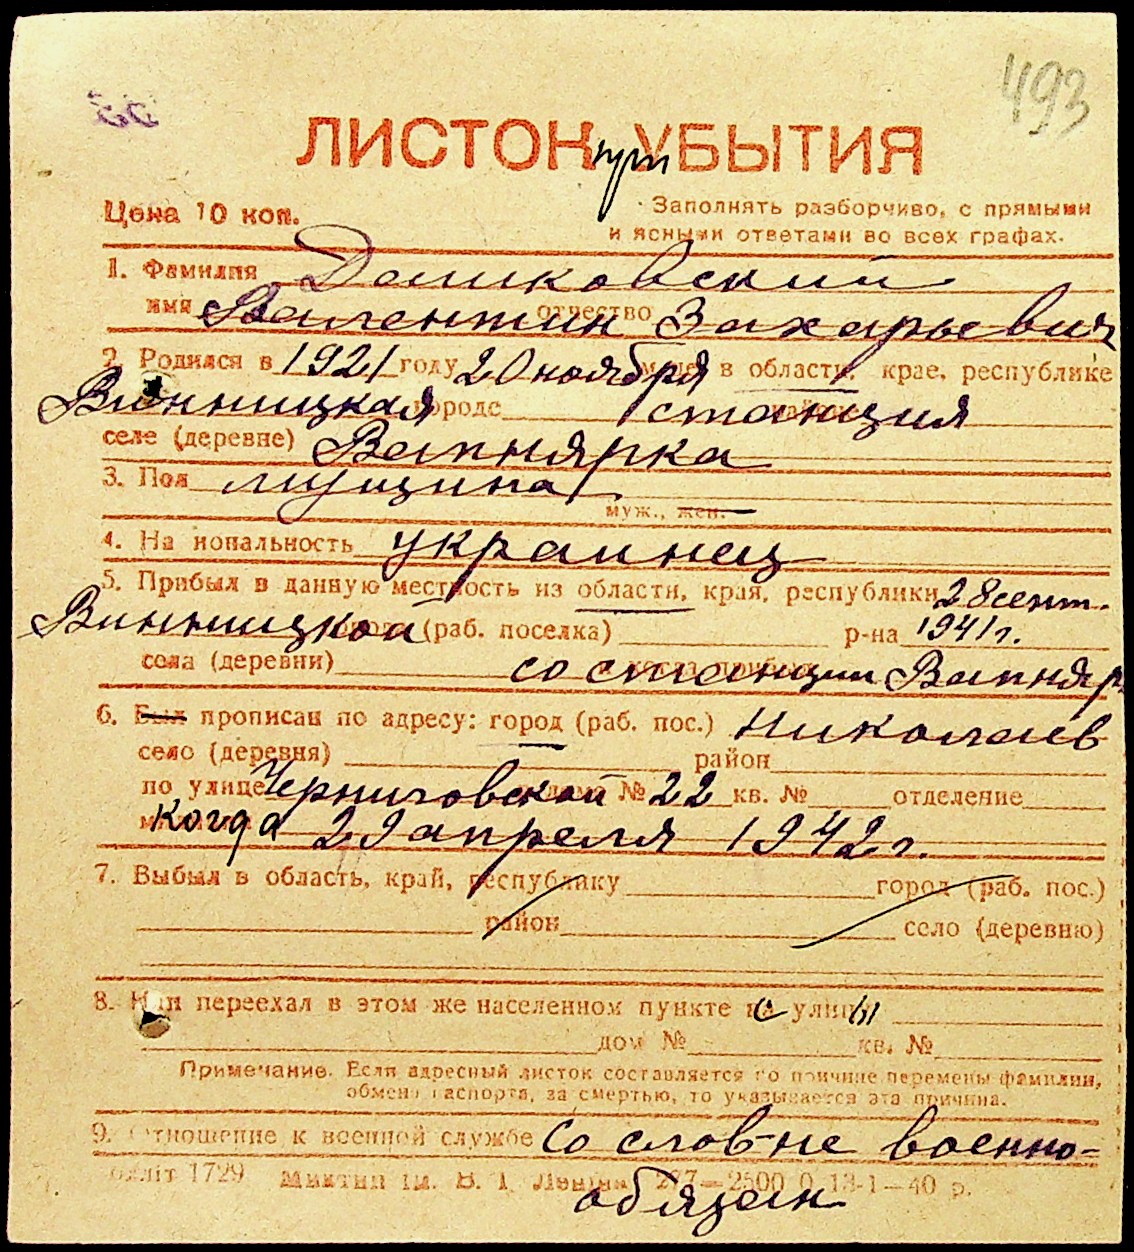 493
ЛИСТОК УБЫТИЯ
при
Цена 10 коп.
Заполнять разборчиво, с прямыми
и ясными ответами во всех графах.
1. Фамилия Демковский
имя Валентин отчество Захарьевич
2. Родился в 1921 году 20 ноября в области, крае, республике
Винницкая городе станция
селе (деревне) Вапнярка
3. Пол мущина
муж., жен.
4. Национальность украинец
5. Прибыл в данную местность из области, края, республики 28 сент.
Винницкой (раб. поселка) р-на 1941 г.
села (деревни) со станции Вапняр
6. Был прописан по адресу: город (раб. пос.) Николаев
село (деревня) район
по улице Черниговской дома № 22 кв. № отделение
когда 29 апреля 1942 г.
7. Выбыл в область, край, республику город (раб. пос.)
район село (деревню)
8. Или переехал в этом же населенном пункте с улицы
дом № кв. №
Примечание. Если адресный листок составляется по причине перемены фамилии,
обмена паспорта, за смертью, то указывается эта причина.
9. Отношение к военной службе Со слов-не военно-
обліт 1729 ім. В. І. Леніна 277—2500 0 13-1—40 р.
обязан